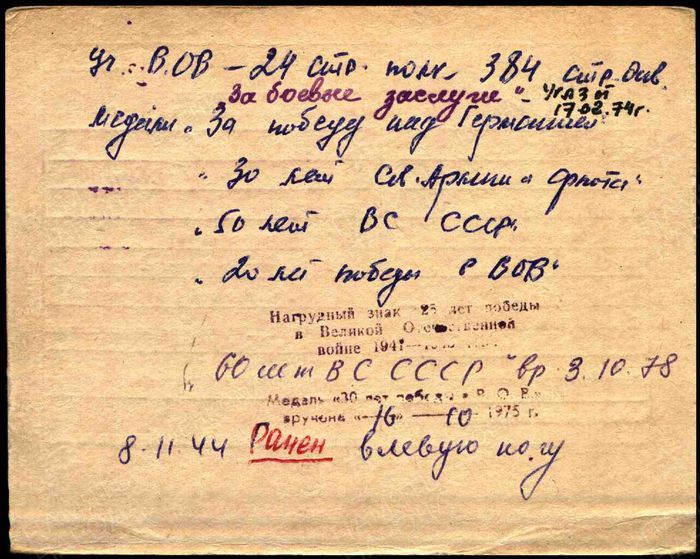 Уч. ВОВ – 24 стр. полк 384 стр. див.
"За боевые заслуги" – Указ от 17.02.74г.
Медали „За победу над Германией"
„30 лет Сов. Армии и Флота"
„50 лет ВС СССР"
„20 лет победы в ВОВ"
Нагрудный знак 25 лет победы
в Великой Отечественной
войне 1941—
„60 лет ВС СССР" вр 3.10.78
Медаль «30 лет победы в В.О.В.»
вручена «16» 10 1975 г.
8.11.44 Ранен в левую ногу